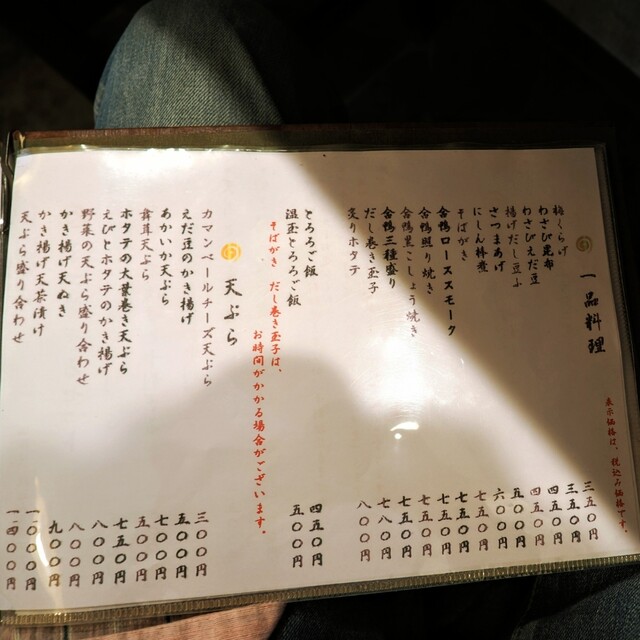 表示価格は、税込み価格です。
一品料理
梅くらげ
三五〇円
わさび昆布
三五〇円
わさびえだ豆
四五〇円
揚げだし豆ふ
四五〇円
さつまあげ
五〇〇円
にしん棒煮
六〇〇円
そばがき
七五〇円
合鴨ローススモーク
七五〇円
合鴨照り焼き
七五〇円
合鴨黒こしょう焼き
七五〇円
合鴨三種盛り
七五〇円
だし巻き玉子
七八〇円
炙りホタテ
八〇〇円
とろろご飯
四五〇円
温玉とろろご飯
五〇〇円
そばがき だし巻き玉子は、
お時間がかかる場合がございます。
天ぷら
カマンベールチーズ天ぷら
三〇〇円
えだ豆のかき揚げ
五〇〇円
あかいか天ぷら
七〇〇円
舞茸天ぷら
五〇〇円
ホタテの大葉巻き天ぷら
七五〇円
えびとホタテのかき揚げ
八〇〇円
野菜の天ぷら盛り合わせ
八〇〇円
かき揚げ天ぬき
九〇〇円
かき揚げ天茶漬け
一、〇〇〇円
天ぷら盛り合わせ
一、四〇〇円